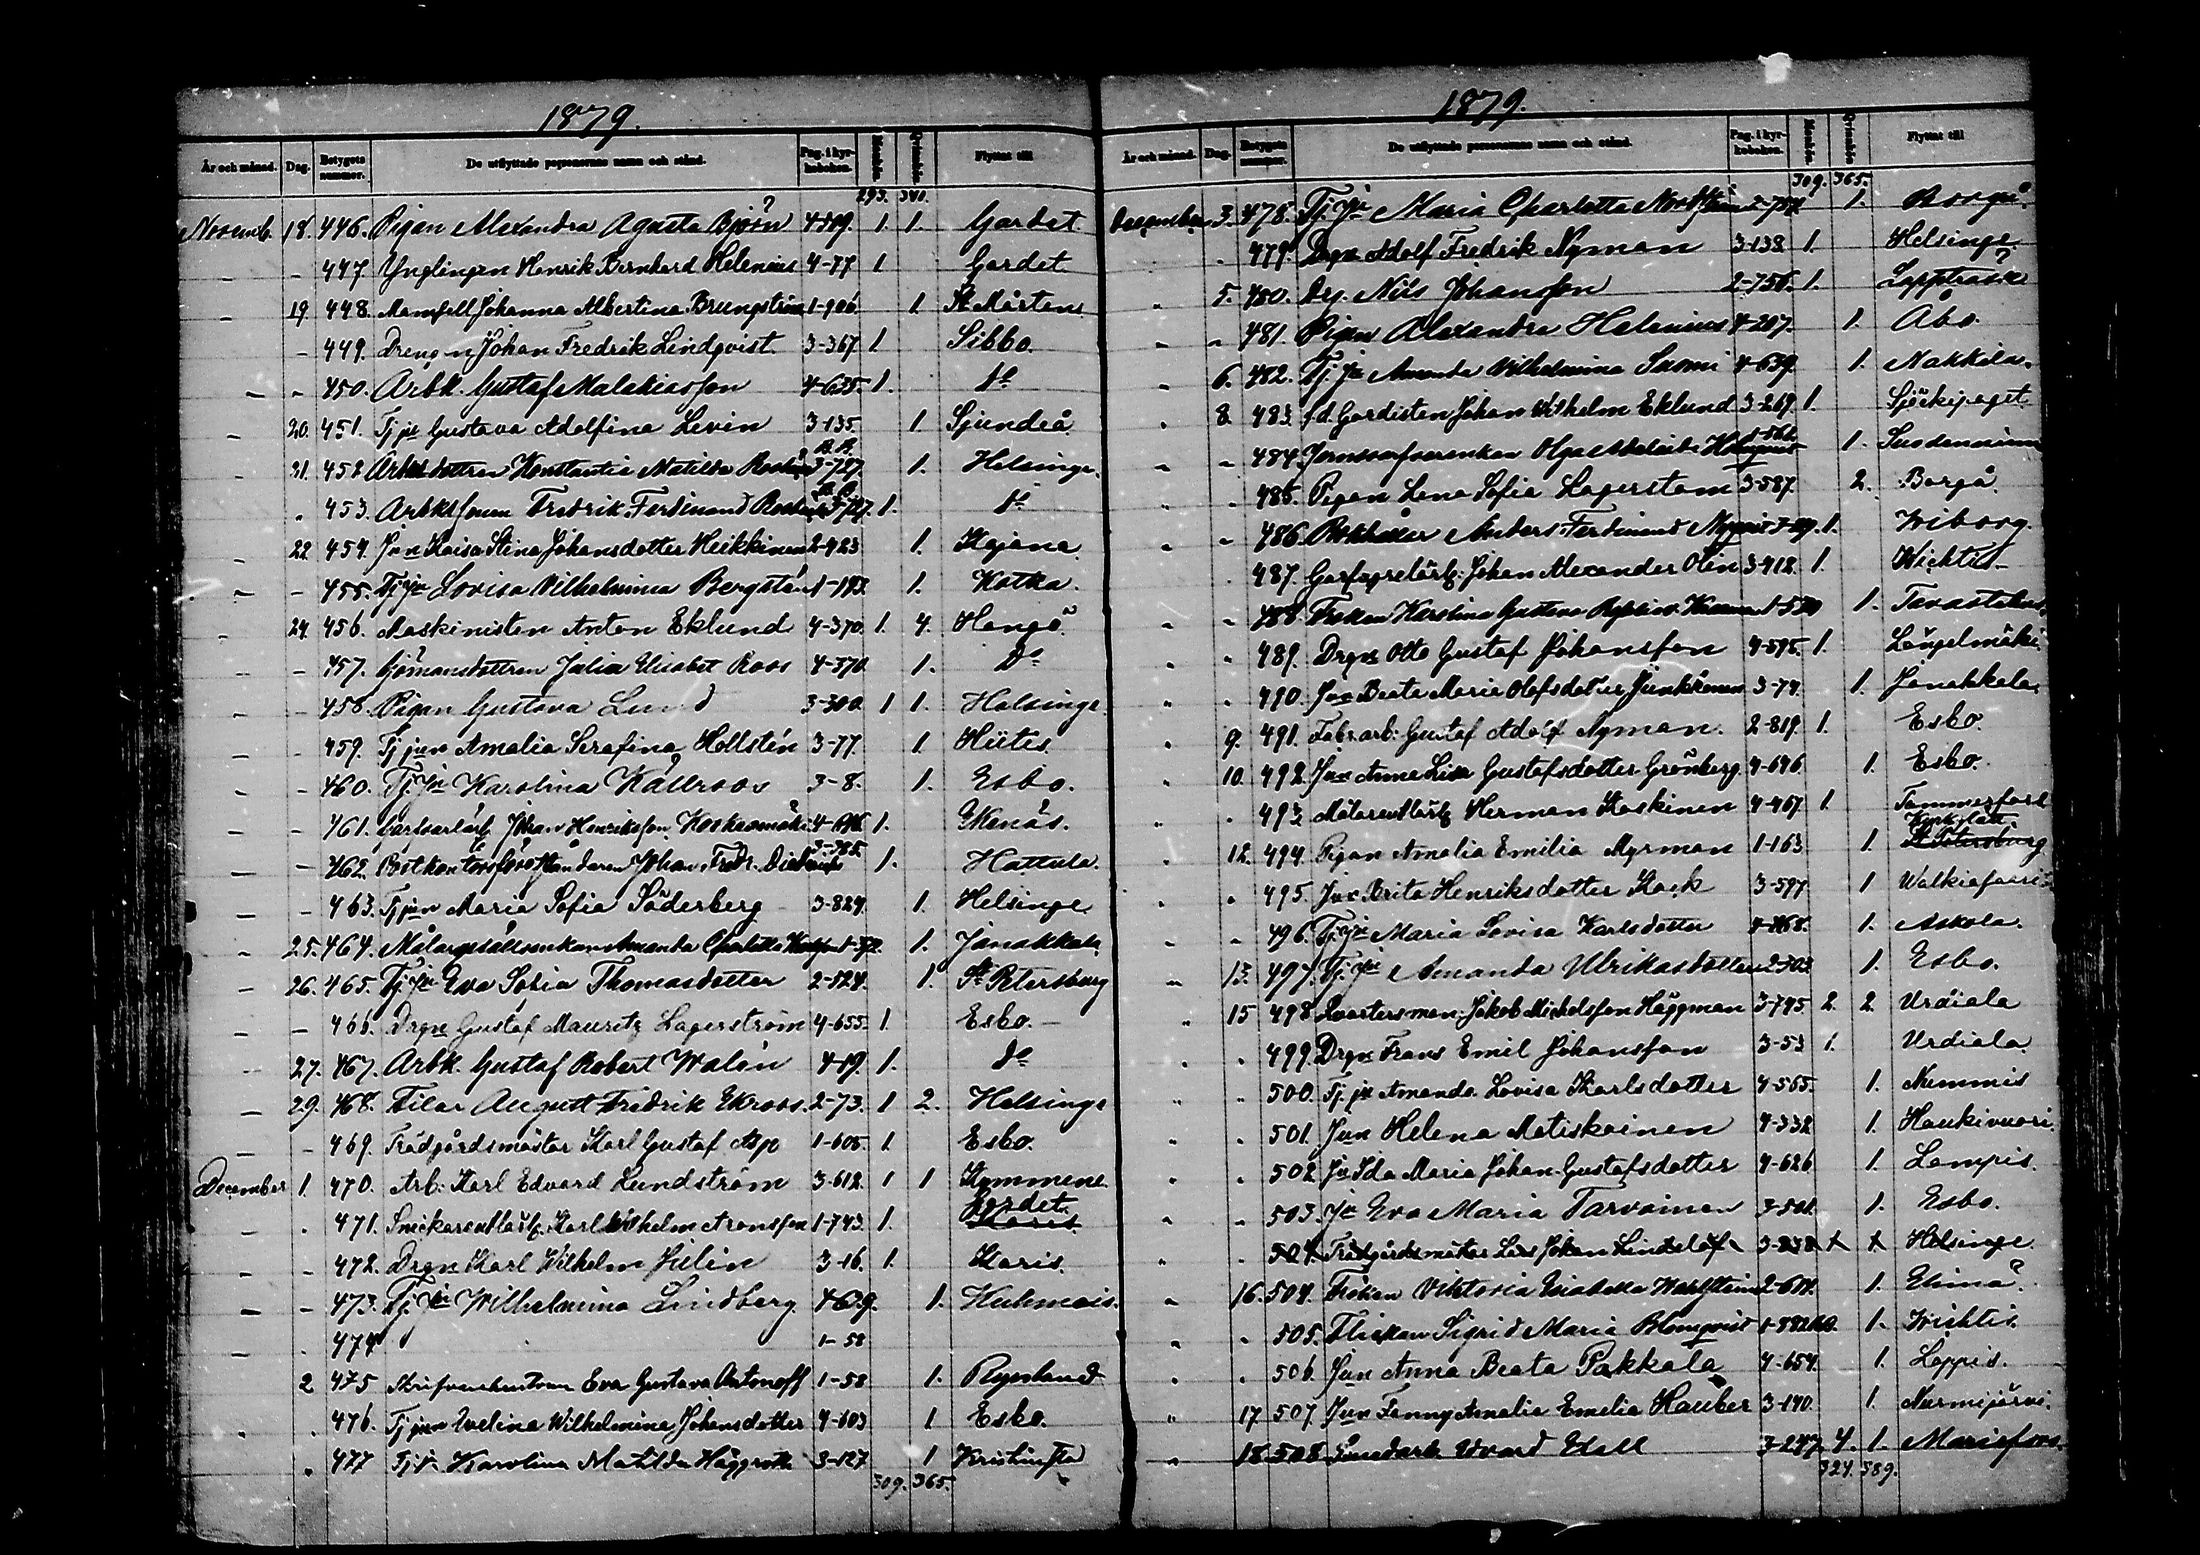 1879.
År och månad. Dag. Betygets nummer. De utflyttade personernas namn och stånd. Pag. i kyrkoboken. Mankön. Qvinkön. Flyttat till
293. 340.
Novemb. 18. 446. Pigan Alexandra Agusta Björn 4-519. 1. 1. Gardet.
– – 447 Ynglingen Henrik Bernhard Helenius 4-77 1 Gardet.
– 19. 448. Mamsell Johanna Albertina Brungström 1-906. 1. St Mårtens
– 449. Drengen Johan Fredrik Lindqvist. 3-367 1. Sibbo.
– – 450. Arbk. Gustaf Malakiasson 4-635. 1. do
– 20. 451. Tj pn Gustava Adolfina Levin 3-135. 1. Sjundeå
– 21. 452 Arbksdottren Konstantia Matilda 3-727. 1. Helsinge.
. 453. Arbkssonen Fredrik Ferdinand 3-727. 1. do
– 22. 454. Jun Kaisa Stina Johansdotter Heikkinen 2-423 1. Kajana
– – 455. Tj pn Lovisa Vilhelmina Bergstén 1-193. 1. Kotka.
– 24. 456. Maskinisten Anton Eklund 4-370. 1. 4. Hangö.
– – 457. Sjömansdottren Julia Elisabet Roos 4-370. 1. Do
– – 458. Pigan Gustava Lund 3-300. 1 1. Helsinge.
– – 459. Tj jun Amalia Serafina Hellstén 3-77. 1. Hiitis.
– – 460. Tj pn Karolina Källroos 3-8. 1. Esbo.
– – 461. Johan Henriksson Koskenmäki 1. Ekenäs.
– – 462. Bokkontorsföreståndaren Johan Fredr. 3-785. 1. Hattula.
– – 463. Tj jun Maria Sofia Söderberg 3-824. 1. Helsinge
– 25. 464. Målaregesällsenkan Amanda Charlotta 1. Janakkala.
– 26. 465. Tj. pn Eva Sofia Thomasdotter 2-524. 1. St Petersburg
– – 466. Drgn Gustaf Mauritz Lagerström 4-655. 1. Esbo. –
– 27. 467. Arbk. Gustaf Robert Walén 4-19. 1. do
– 29. 468. Filar August Fredrik Ekroos. 2-73. 1 2. Helsinge
– – 469. Trädgårdsmästar Karl Gustaf Asp 1-605. 1. Esbo.
December 1. 470. Arb. Karl Edvard Lundström 3-612. 1 1 Kymmene.
– . 471. Snickarenlärl. Karl Wilhelm Aronsson 1-743. 1. Gardet. Karis
– – 472. Drgn Karl Wilhelm Julin 3-16. 1. Karis.
– – 473. Tj pn Wilhelmina Lindberg. 4-639. 1. Kuhmois.
– . 474 1-58
2 475 Skrifvarehustrun Eva Gustava Antonoff 1-58 1. Ryssland
. . 476. Tj jun Evelina Wilhelmina Johansdotter 4-603 1 Esbo.
. 477 Tj pn Karolina Matilda Häggroth 3-127 1 Kristinesta
309. 365.
1879.
År och månad. Dag. Betygets nummer. De utflyttade personernas namn och stånd. Pag. i kyrkoboken. Mankön. Qvinkön. Flyttat till
309. 365.
December 3. 478. Tj. pn Maria Charlotta 1. Borgå.
. 479. Drgn Adolf Fredrik Nyman 3-138 1. Helsinge
. 5. 480. Drg. Nils Johansson 2-756. 1. Lappträsk
. . 481. Pigan Alexandra Helenius 4-207. 1. Åbo.
. 6. 482. Tj. pn Amanda Vilhelmina Suomi 4-639. 1. Nakkila.
. 8. 483. f.d. Gardisten Johan Wilhelm Eklund 3-269. 1. Sjöekipaget
. . 484. Olga Adelaide Holmqvist 1. Suodenniemi
. . 485. Pigan Lena Sofia Lagerstam 3-587. 2. Borgå.
. . 486. Bokhållar Anders Ferdinand Nyqvist 1. Wiborg.
. 487. Garfvarelärl. Johan Alexander Olin 3-412. 1. Wichtis
. . 488. Fröken Karolina Gustava 1. Tavastehus.
. . 489. Drgn Otto Gustaf Johansson 4-595. 1. Längelmäki
. . 490. Jun Beata Maria Olofsdotter Junkkonen 3-74. 1. Janakkala.
. 9. 491. Fabr.arb. Gustaf Adolf Nyman. 2-819. 1. Esbo.
. 10. 492. Jun Anna Lisa Gustafsdotter Grönberg. 4-696. 1. Esbo.
. . 493. Målarenlärl. Herman Koskinen 4-467 1. Tammerfors
. 12. 494. Pigan Amalia Emilia Myrman 1-163 1 Kyrkslätt. St Petersburg
. . 495. Jun Brita Henriksdotter Kack 3-597 1 Walkiasaari
. . 496. Tj. pn Maria Lovisa Karlsdotter 1. Askola.
. 13. 497. Tj. pn Amanda Ulrikasdotter 2-303 1. Esbo.
. 15 498. Qvartersman Jakob Mickelsson Häggman 3-795 2. 2. Urdiala
. . 499. Drgn Frans Emil Johansson 3-53 1. Urdiala.
. . 500. Tj. pn Amanda Lovisa Karlsdotter 4-565. 1. Nummis
. . 501. Jun Helena Matiskainen 4-332 1. Haukivuori.
. . 502. Jn Ida Maria Johan Gustafsdotter 4-626 1. Lampis.
. . 503. Jn Eva Maria Tarvainen 3-501. 1. Esbo.
. . 504. Trädgårdsmästar Lars Johan Lindelöf 3-238 Helsinge.
. 16. 504. Fröken Viktoria 1. Elimä.
. . 505. Flickan Sigrid Maria Blomqvist 1. Wichtis.
. . 506. Jun Anna Beata Pakkala 4-654. 1. Loppis.
. 17 507. Jun Fanny Amalia Emelia Hauber 3-140. 1. Nurmijärvi.
. 18. 508. Edvard Edell 3-247. 4. 1. Mariefors.
324. 389.